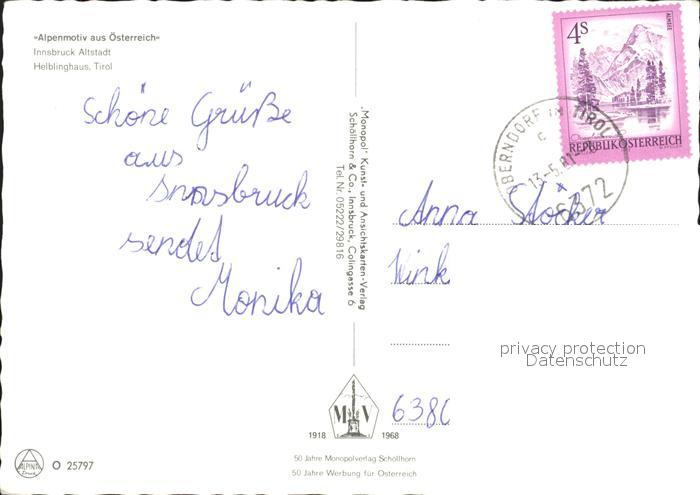 »Alpenmotiv aus Österreich«
Innsbruck Altstadt
Helblinghaus, Tirol
Schöne Grüße
aus
Innsbruck
sendet
Monika
„Monopol" Kunst- und Ansichtskarten-Verlag
Schöllhorn & Co., Innsbruck, Colingasse 6
Tel. Nr. 05222/29816
4S
ALMSEE
REPUBLIK ÖSTERREICH
OBERNDORF IN TIROL
c
13.-5.81
6372
Anna Stocker
Wink
privacy protection
Datenschutz
6380
M V
1918 1968
50 Jahre Monopolverlag Schöllhorn
50 Jahre Werbung für Österreich
ALPINA
Druck
O 25797